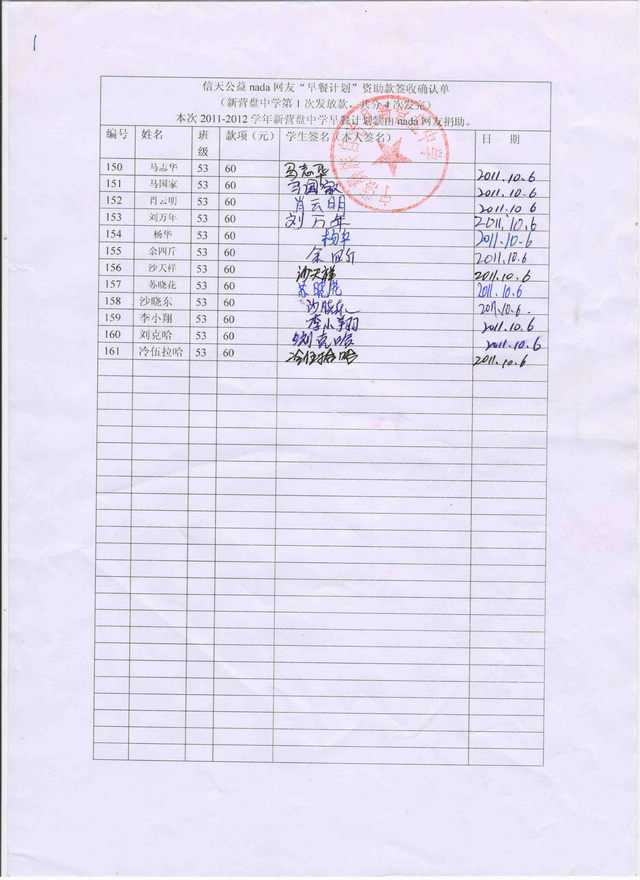 1
信天公益 nada 网友“早餐计划”资助款签收确认单
（新营盘中学第 1 次发放款，共分 4 次发完）
本次 2011-2012 学年新营盘中学早餐计划款由 nada 网友捐助。
编号 姓名 班级 款项（元） 学生签名（本人签名） 日 期
150 马志华 53 60 马志华 2011.10.6
151 马国家 53 60 马国家 2011.10.6
152 肖云明 53 60 肖云明 2011.10.6
153 刘万年 53 60 刘万年 2011.10.6
154 杨华 53 60 杨华 2011.10.6
155 余四斤 53 60 余四斤 2011.10.6
156 沙天祥 53 60 沙天祥 2011.10.6
157 苏晓花 53 60 苏晓花 2011.10.6
158 沙晓东 53 60 沙晓东 2011.10.6
159 李小翔 53 60 李小翔 2011.10.6
160 刘克哈 53 60 刘克哈 2011.10.6
161 冷伍拉哈 53 60 冷伍拉哈 2011.10.6